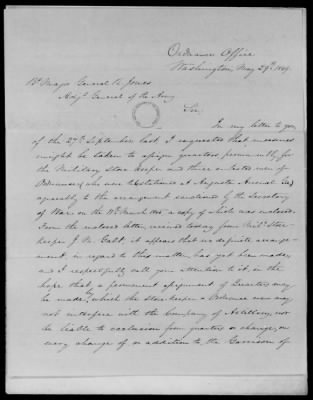 Ordnance Office
Washington, May 29th 1849.
Bt Major General R. Jones
Adjt General of the Army
Sir,
In my letter to you
of the 27th September last I requested that measures
might be taken to assign quarters permanently for
the Military Store Keeper and three enlisted men of
Ordnance (who were stationed at Augusta Arsenal Ga)
agreeably to the arrangement sanctioned by the Secretary
of War on the March a copy of which was enclosed.
From the enclosed letter, received today from Mily Store-
keeper J. M. Galt, it appears that no definite arrange-
ment, in regard to this matter has yet been made,
and I respectfully call your attention to it, in the
hope that a permanent assignment of Quarters may
be made, by which the Store keeper & Ordnance men may
not interfere with the Company of Artillery, nor
be liable to exclusion from quarters or change, on
every change of or addition to, the Garrison of